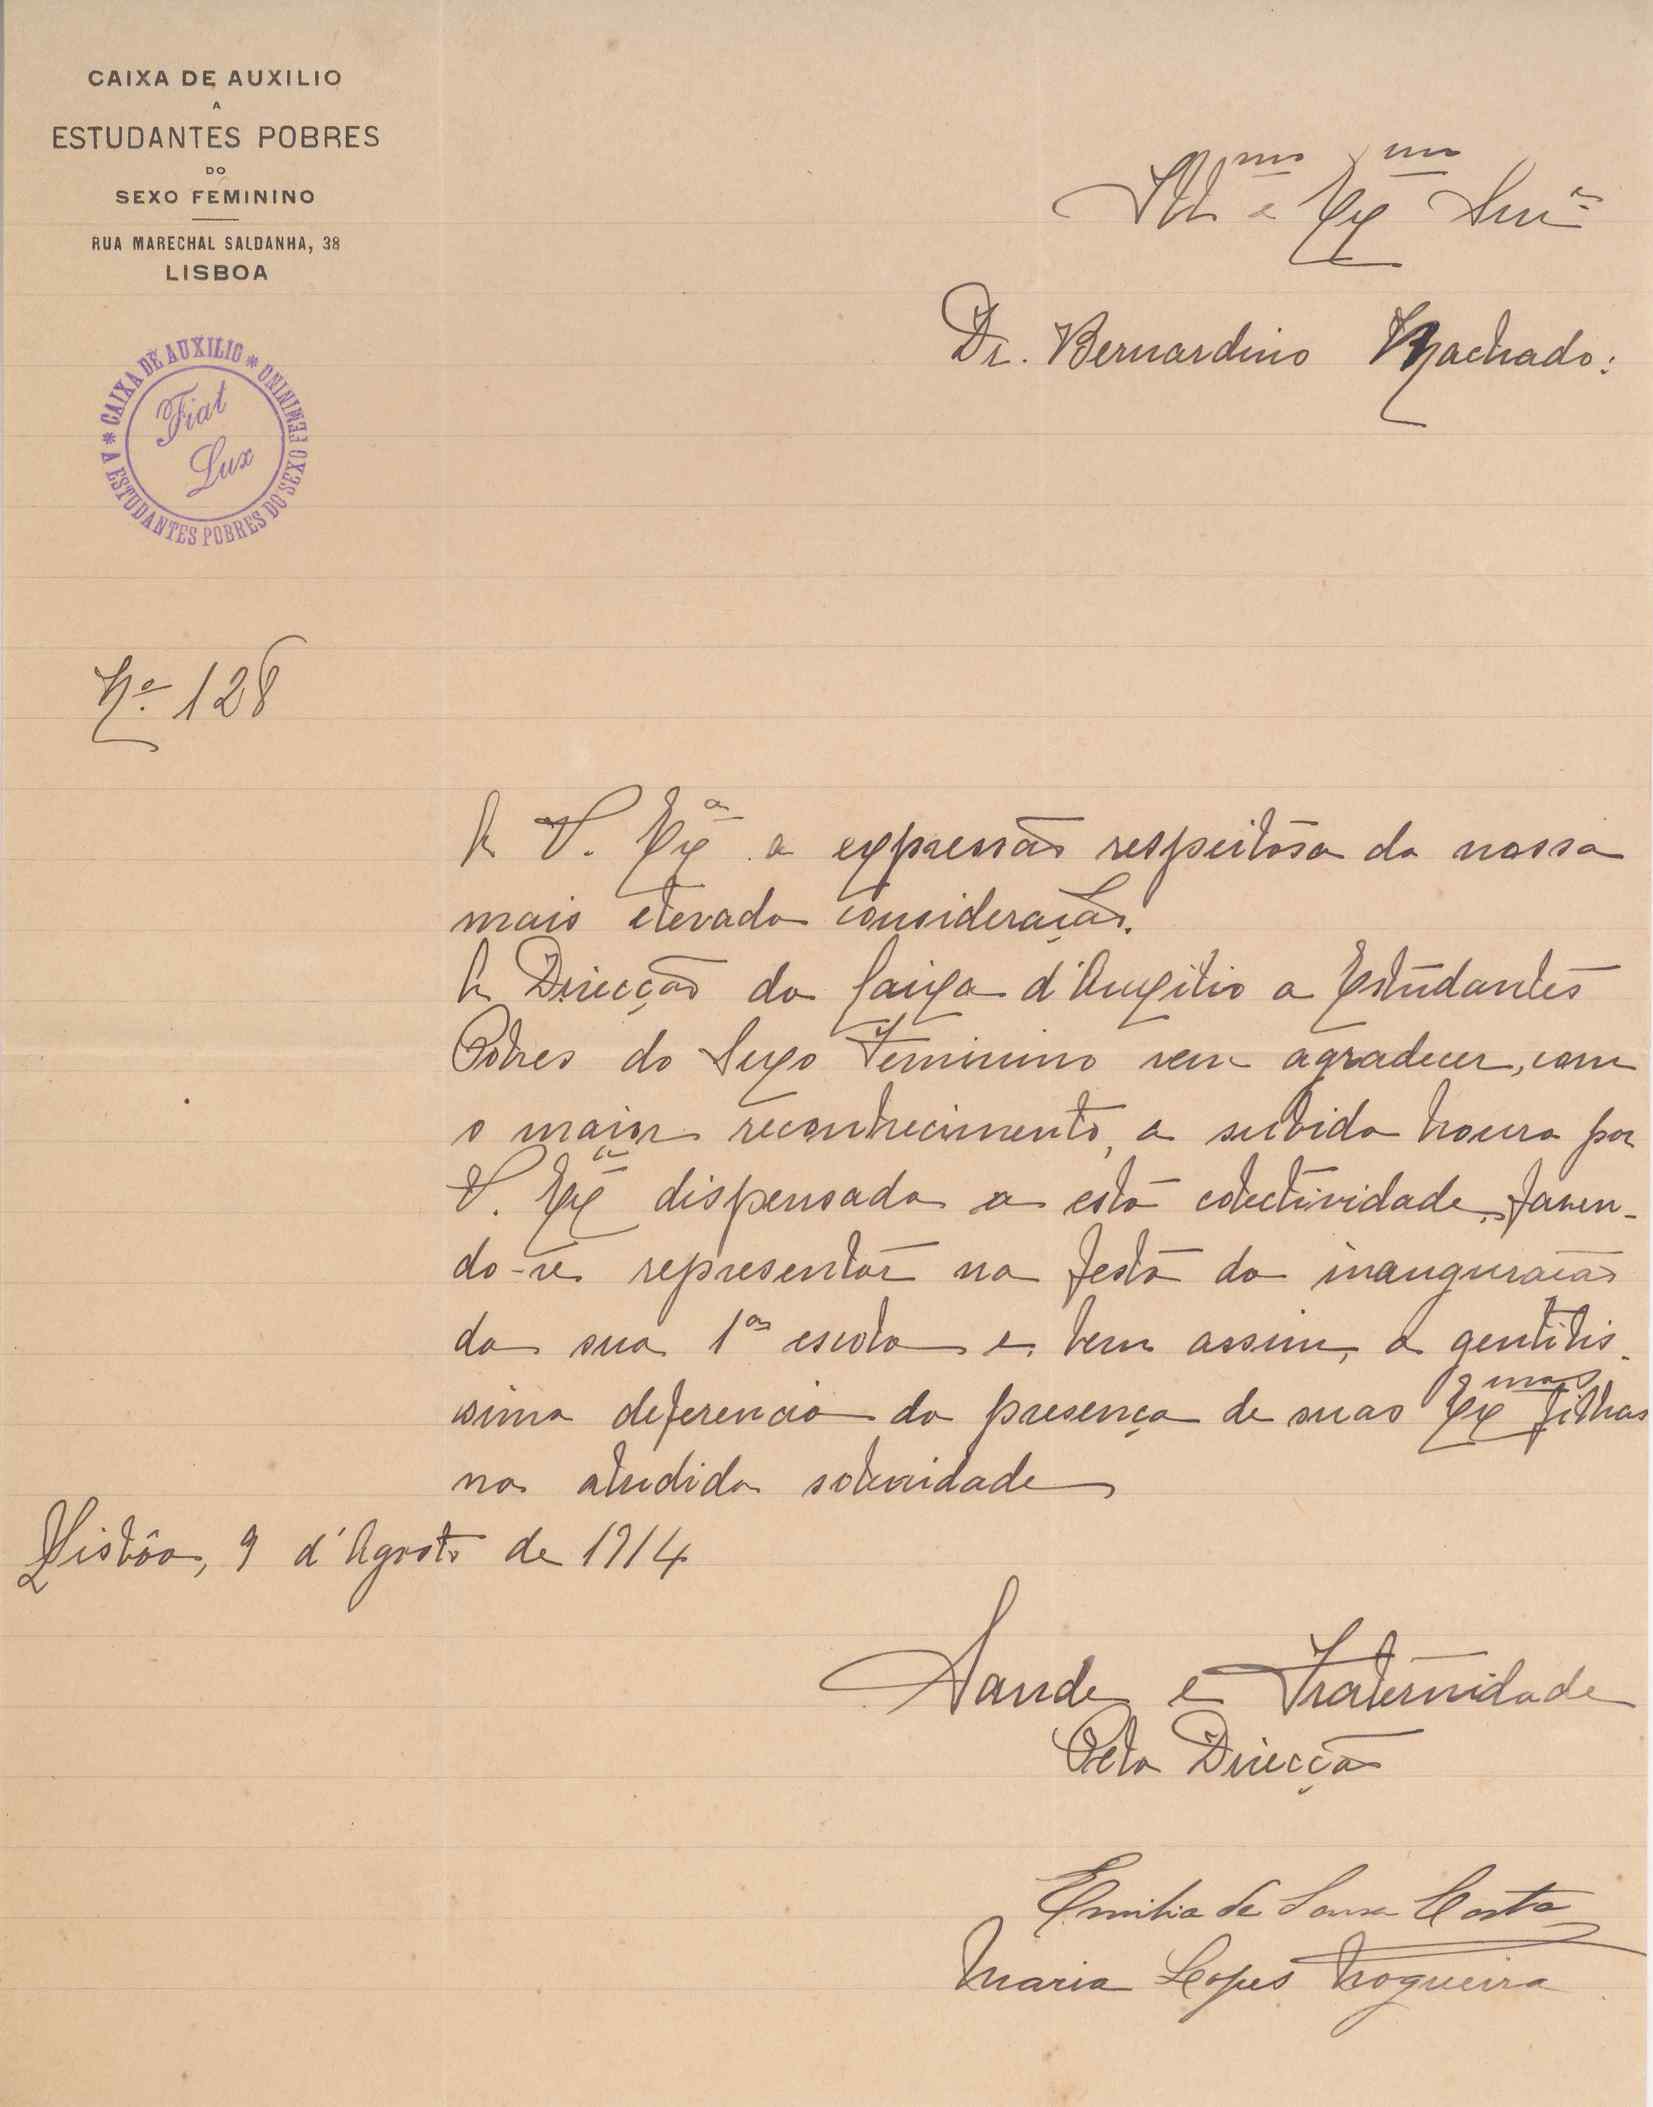 CAIXA DE AUXILIO
A
ESTUDANTES POBRES
DO
SEXO FEMININO
RUA MARECHAL SALDANHA, 38
LISBOA
* CAIXA DE AUXILIO * A ESTUDANTES POBRES DO SEXO FEMININO
Fiat
Lux
Illmo e Exmo Snr
Dr. Bernardino Machado:
Nº 128
A V. Exª a expressão respeitosa da nossa
mais elevada consideração.
A Direcção da Caixa d'Auxilio a Estudantes
Pobres do Sexo Feminino vem agradecer, com
o maior reconhecimento, a subida honra por
V. Exª dispensada a esta colectividade, fazen-
do-se representar na festa da inauguração
da sua 1ª escola e, bem assim, a gentilis-
sima deferencia da presença de suas Exmas filhas
na aludida solenidade
Lisbôa, 9 d'Agosto de 1914
Saude e Fraternidade
Pela Direcção
Emilia de Sousa Costa
Maria Lopes Nogueira